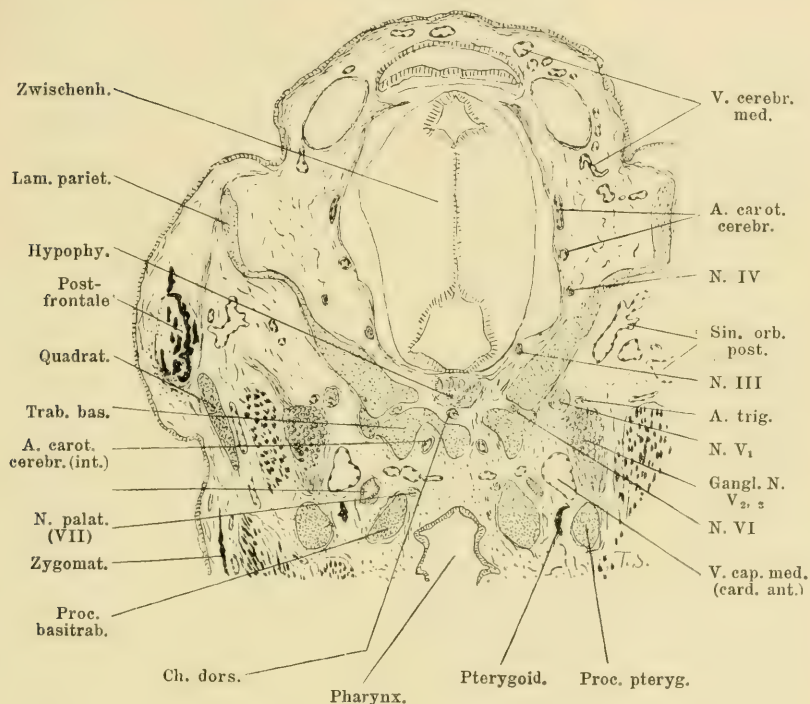 Zwischenh.
Lam. pariet.
Hypophy.
Post-
frontale
Quadrat.
Trab. bas.
A. carot.
cerebr. (int.)
N. palat.
(VII)
Zygomat.
Proc.
basitrab.
Ch. dors.
Pharynx.
Pterygoid.
Proc. pteryg.
V. cerebr.
med.
A. carot.
cerebr.
N. IV
Sin. orb.
post.
N. III
A. trig.
N. V₁
Gangl. N.
V₂, ₃
N. VI
V. cap. med.
(card. ant.)
T. S.